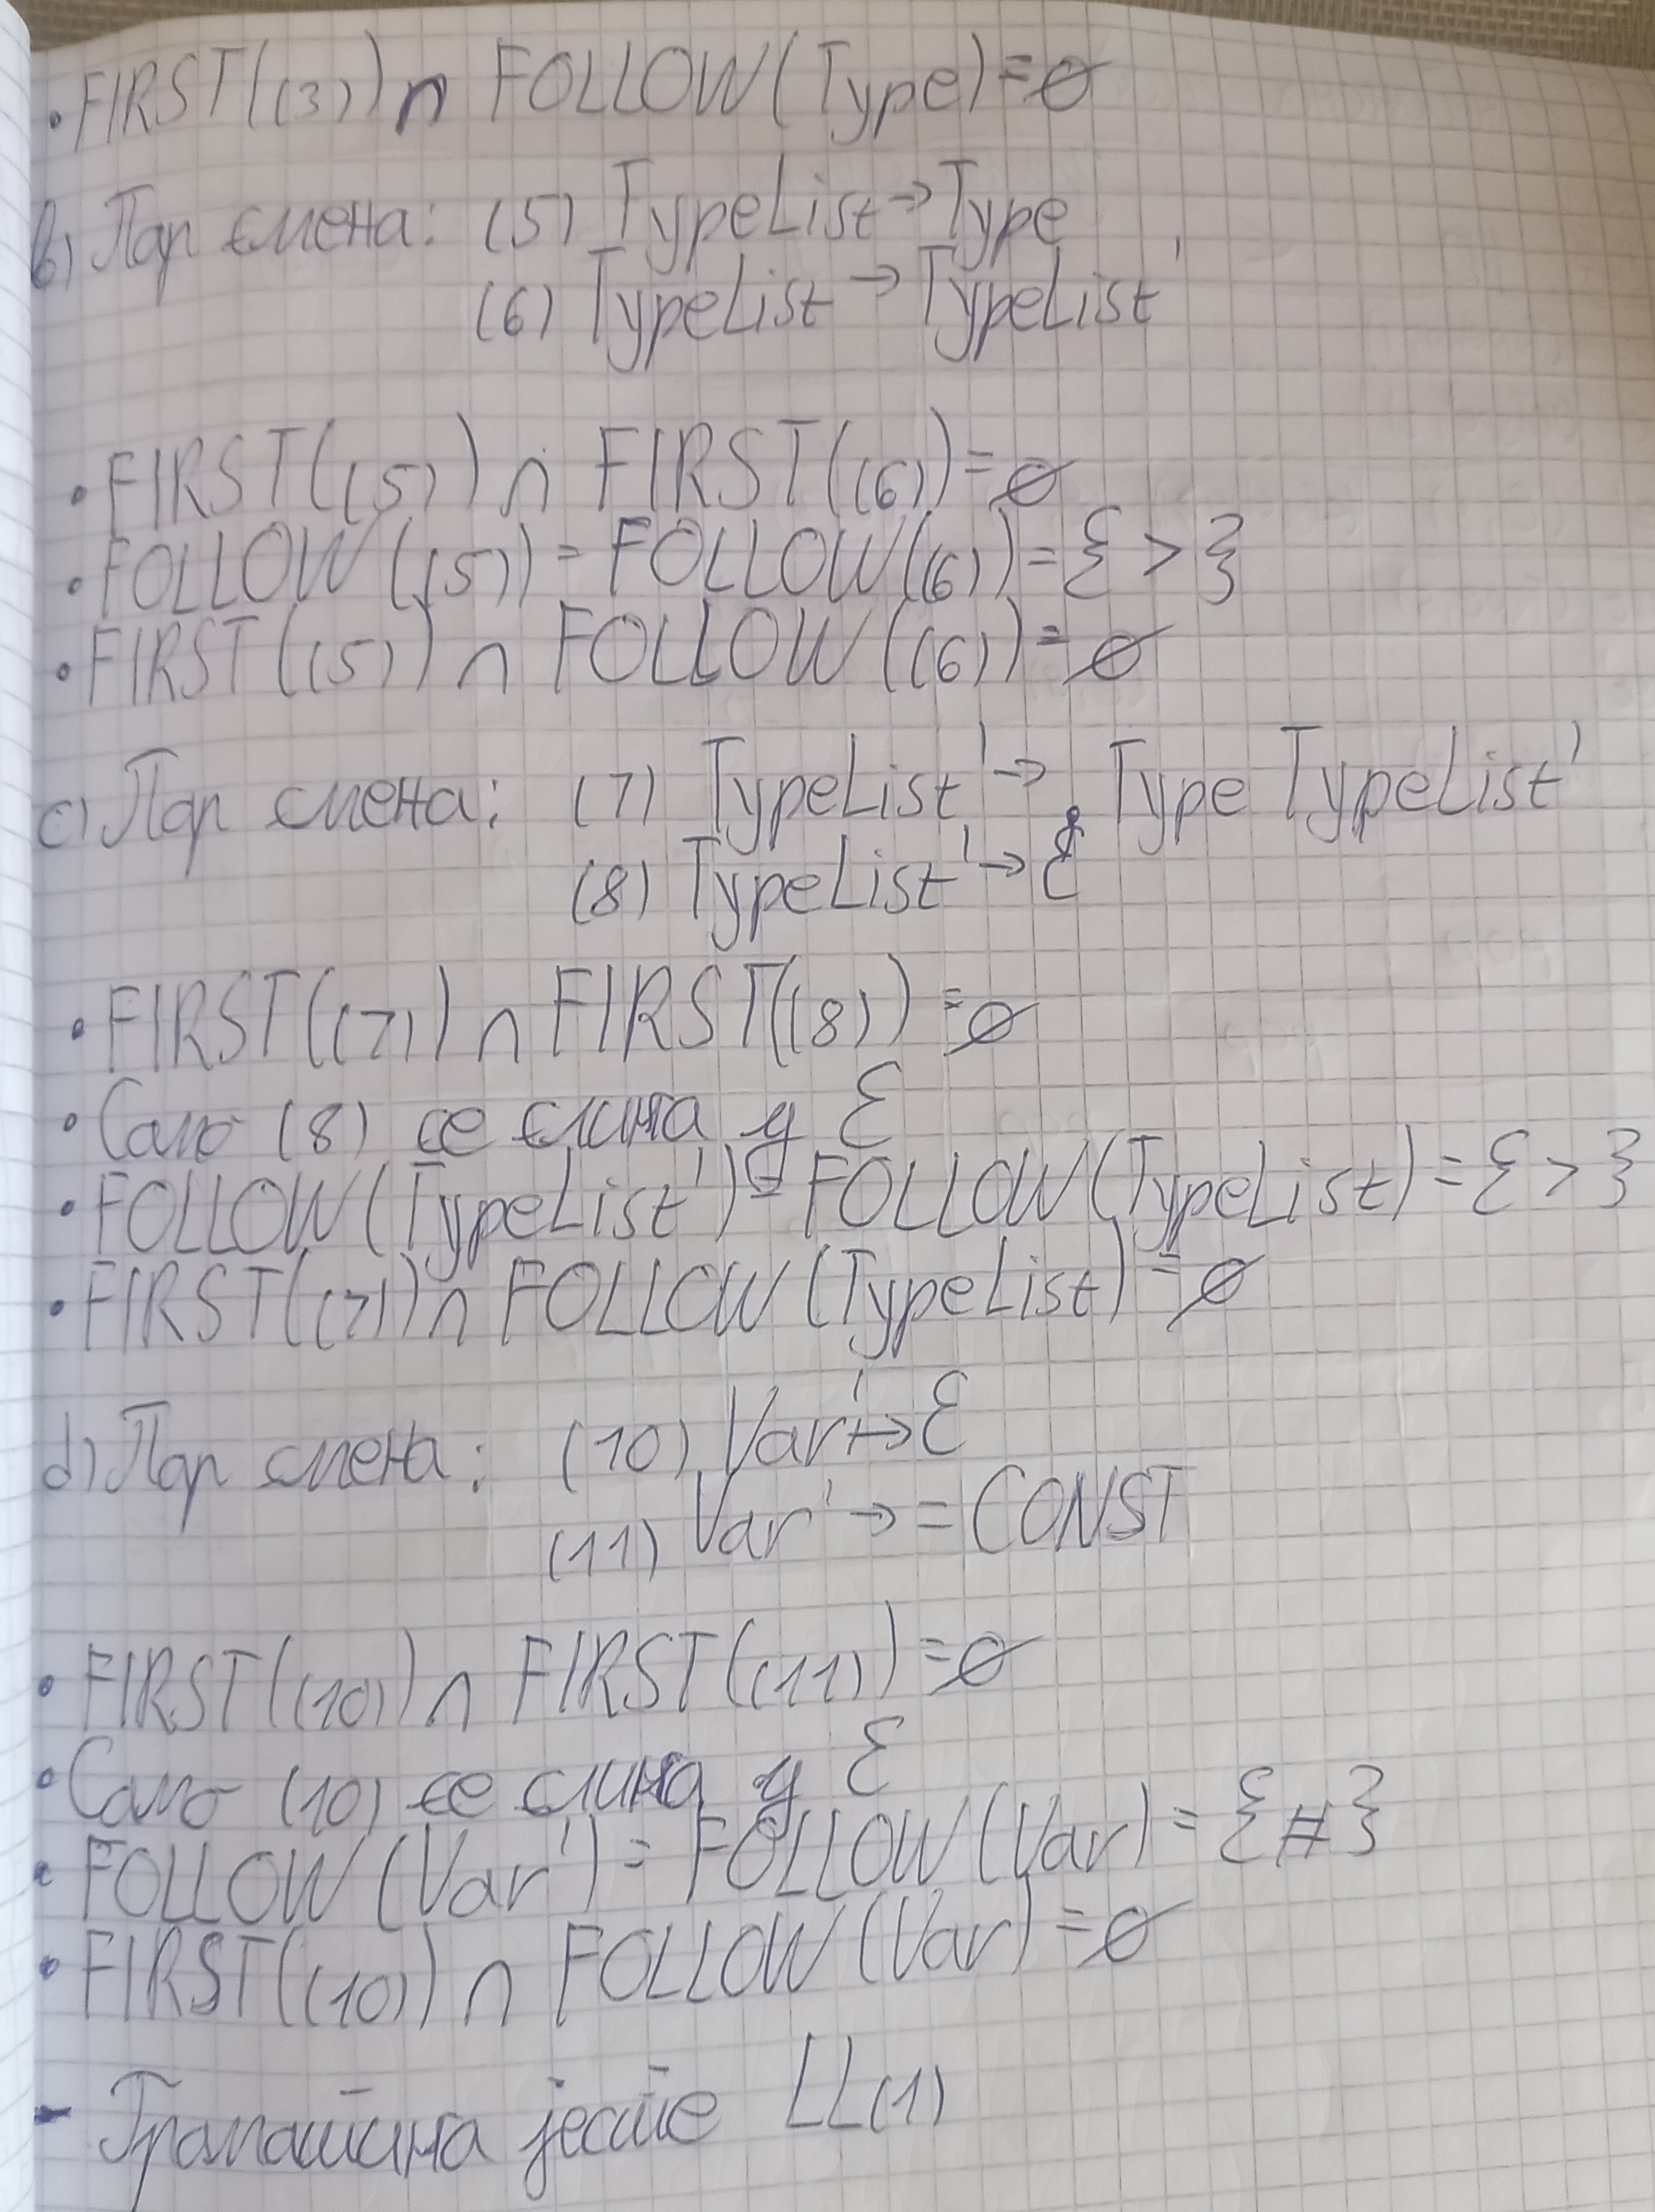 • FIRST((3)) ∩ FOLLOW(Type) = ∅
b) Пар смена: (5) TypeList → Type
(6) TypeList → TypeList'
• FIRST((5)) ∩ FIRST((6)) = ∅
• FOLLOW((5)) = FOLLOW((6)) = { > }
• FIRST((5)) ∩ FOLLOW((6)) = ∅
c) Пар смена: (7) TypeList' → , Type TypeList'
(8) TypeList' → ε
• FIRST((7)) ∩ FIRST((8)) = ∅
• Само (8) се слика у ε
• FOLLOW(TypeList') = FOLLOW(TypeList) = { > }
• FIRST((7)) ∩ FOLLOW(TypeList) = ∅
d) Пар смена: (10) Var' → ε
(11) Var' → = CONST
• FIRST((10)) ∩ FIRST((11)) = ∅
• Само (10) се слика у ε
• FOLLOW(Var') = FOLLOW(Var) = { # }
• FIRST((10)) ∩ FOLLOW(Var) = ∅
- Граматика јесте LL(1)